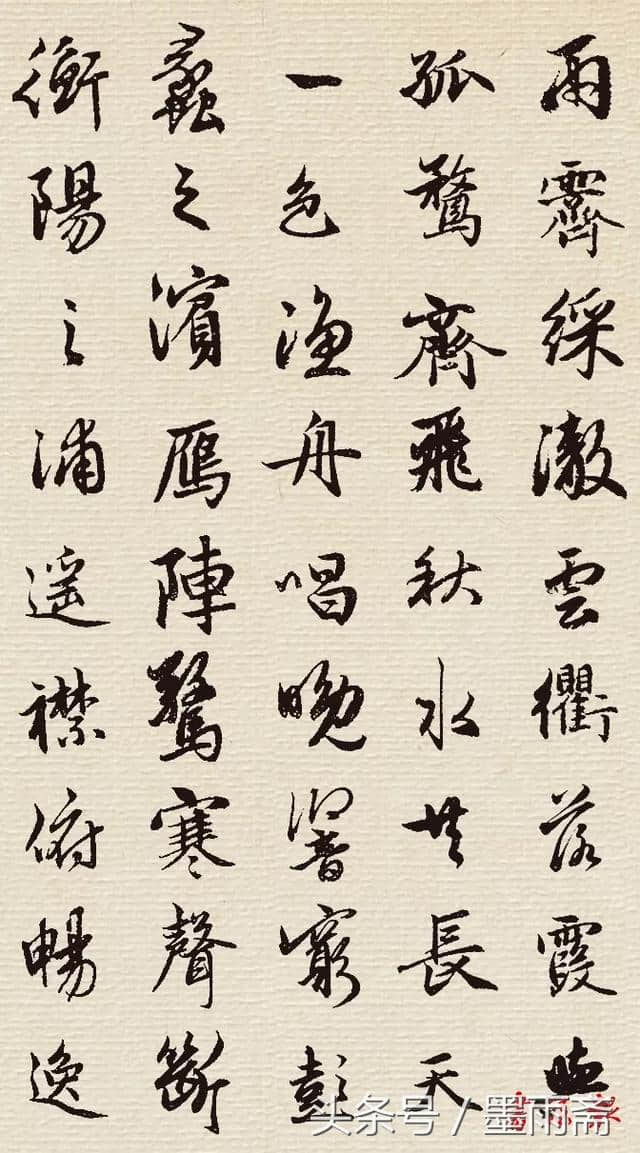 雨霽綵澈雲衢落霞與
孤鶩齊飛秋水共長天
一色漁舟唱晚響窮彭
蠡之濱鴈陣驚寒聲斷
衡陽之浦遥襟俯暢逸
头条号 / 墨雨斋